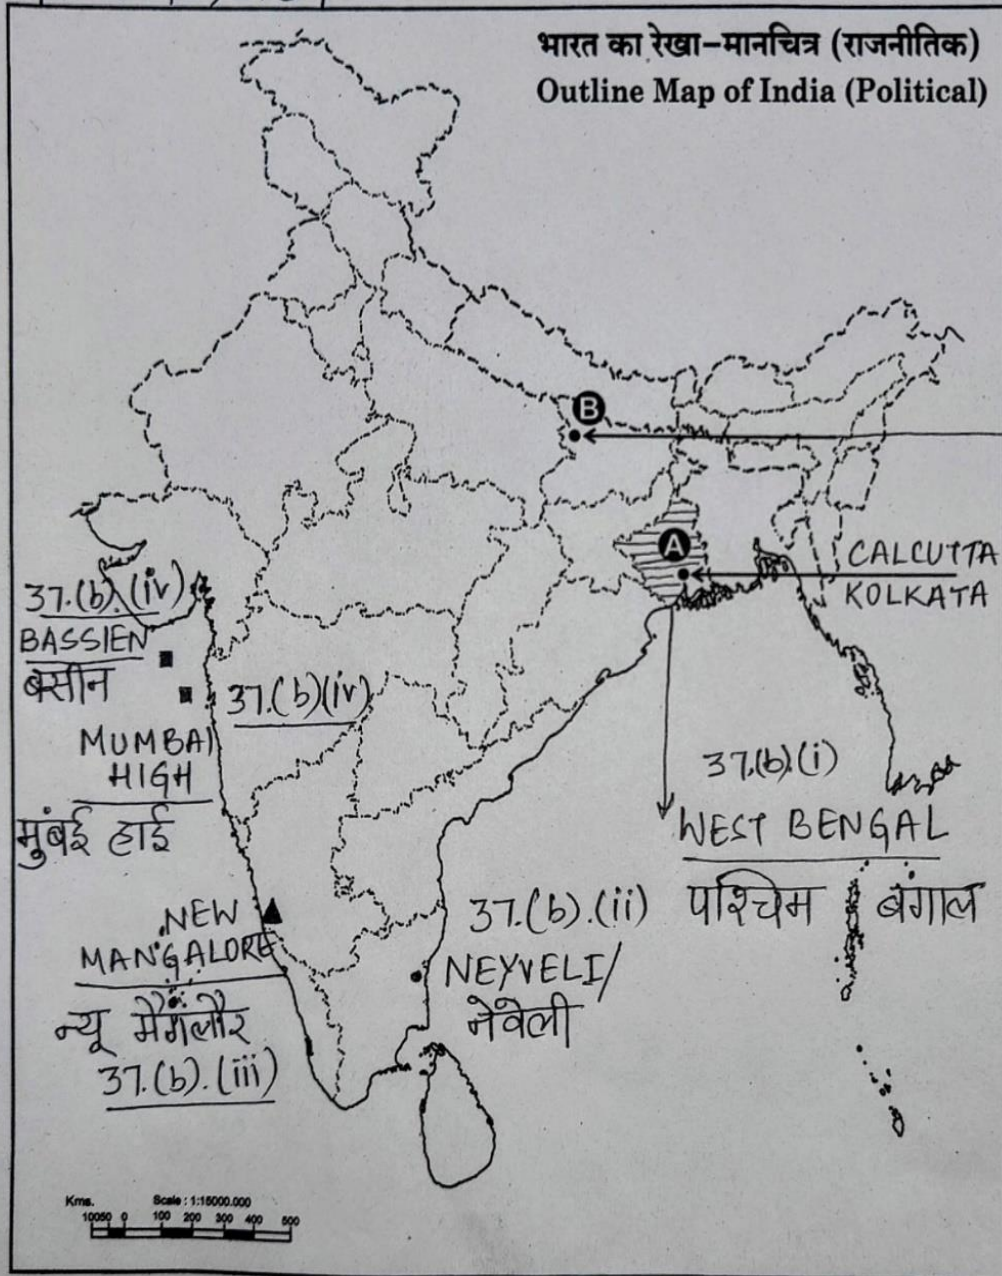 भारत का रेखा-मानचित्र (राजनीतिक)
Outline Map of India (Political)
B
A
CALCUTTA
KOLKATA
37.(b).(iv)
BASSIEN
बसीन
37.(b)(iv)
MUMBAI
HIGH
मुंबई हाई
37.(b).(i)
WEST BENGAL
पश्चिम बंगाल
NEW
MANGALORE
न्यू मैंगलौर
37.(b).(iii)
37.(b).(ii)
NEYVELI/
नेवेली
Kms. Scale : 1:15000.000
10050 0 100 200 300 400 500